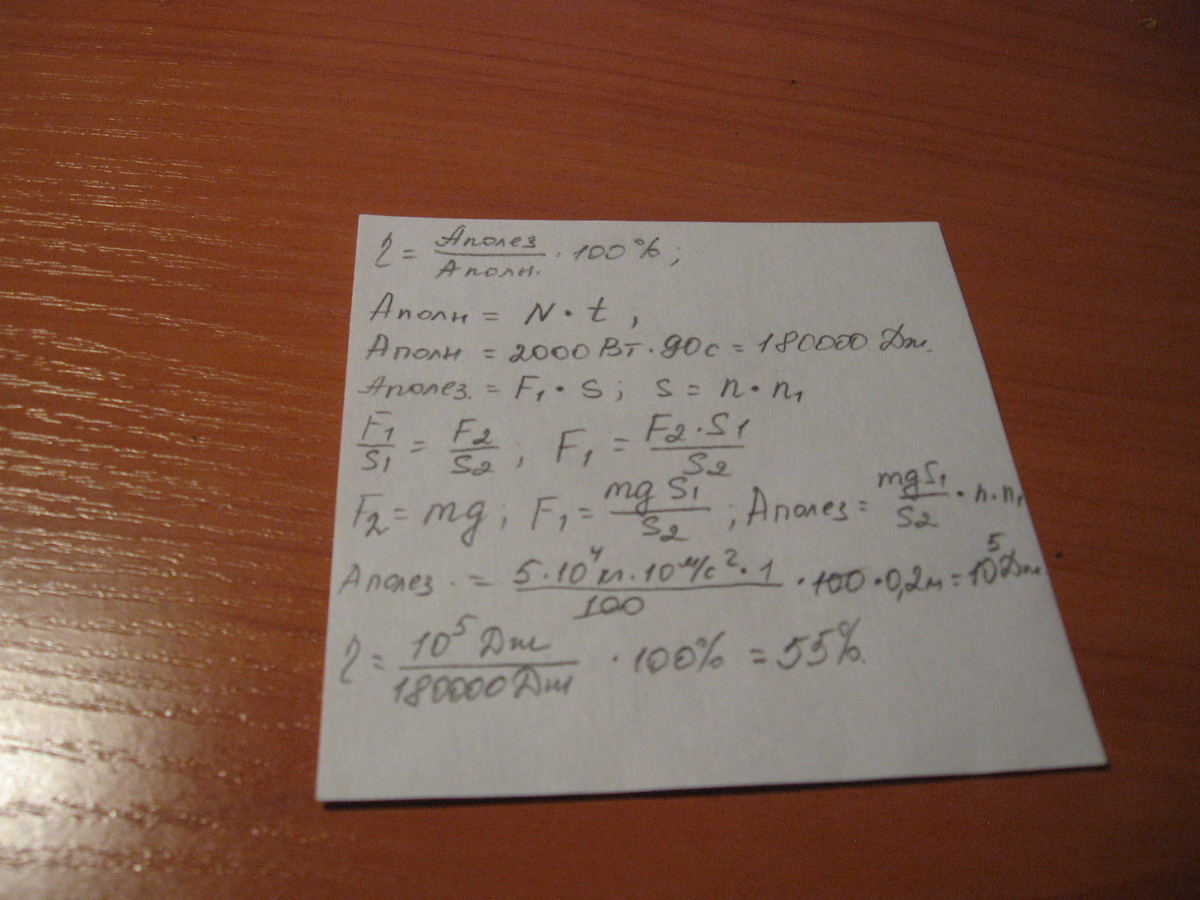 η = Аполез/Аполн. · 100%;
Аполн = N · t,
Аполн = 2000 Вт · 90с = 180000 Дж.
Аполез. = F₁ · S; S = n · n₁
F₁/S₁ = F₂/S₂; F₁ = F₂·S₁/S₂
F₂ = mg; F₁ = mg S₁/S₂; Аполез = mgS₁/S₂ · n·n₁
Аполез. = 5·10⁴кг·10м/с²·1/100 · 100·0,2м = 10⁵Дж
η = 10⁵Дж/180000Дж · 100% = 55%.